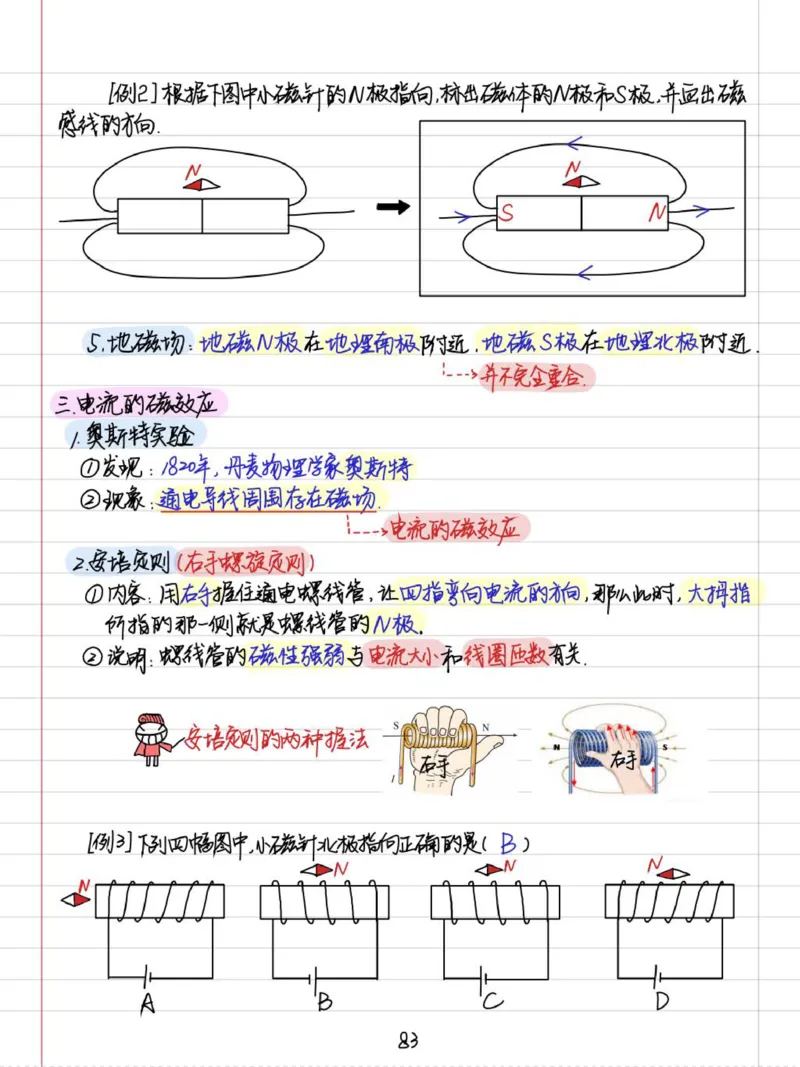 [例2]根据下图中小磁针的N极指向,标出磁体的N极和S极,并画出磁
感线的方向.
N
N
S N
5.地磁场:地磁N极在地理南极附近,地磁S极在地理北极附近.
并不完全重合.
三.电流的磁效应
1.奥斯特实验
①发现:1820年,丹麦物理学家奥斯特
②现象:通电导线周围存在磁场.
电流的磁效应
2.安培定则(右手螺旋定则)
①内容:用右手握住通电螺线管,让四指弯向电流的方向,那么此时,大拇指
所指的那一侧就是螺线管的N极.
②说明:螺线管的磁性强弱与电流大小和线圈匝数有关.
安培定则的两种握法
S N
右手
I
N S
右手
[例3]下列四幅图中,小磁针北极指向正确的是(B)
N N N N
A B C D
83